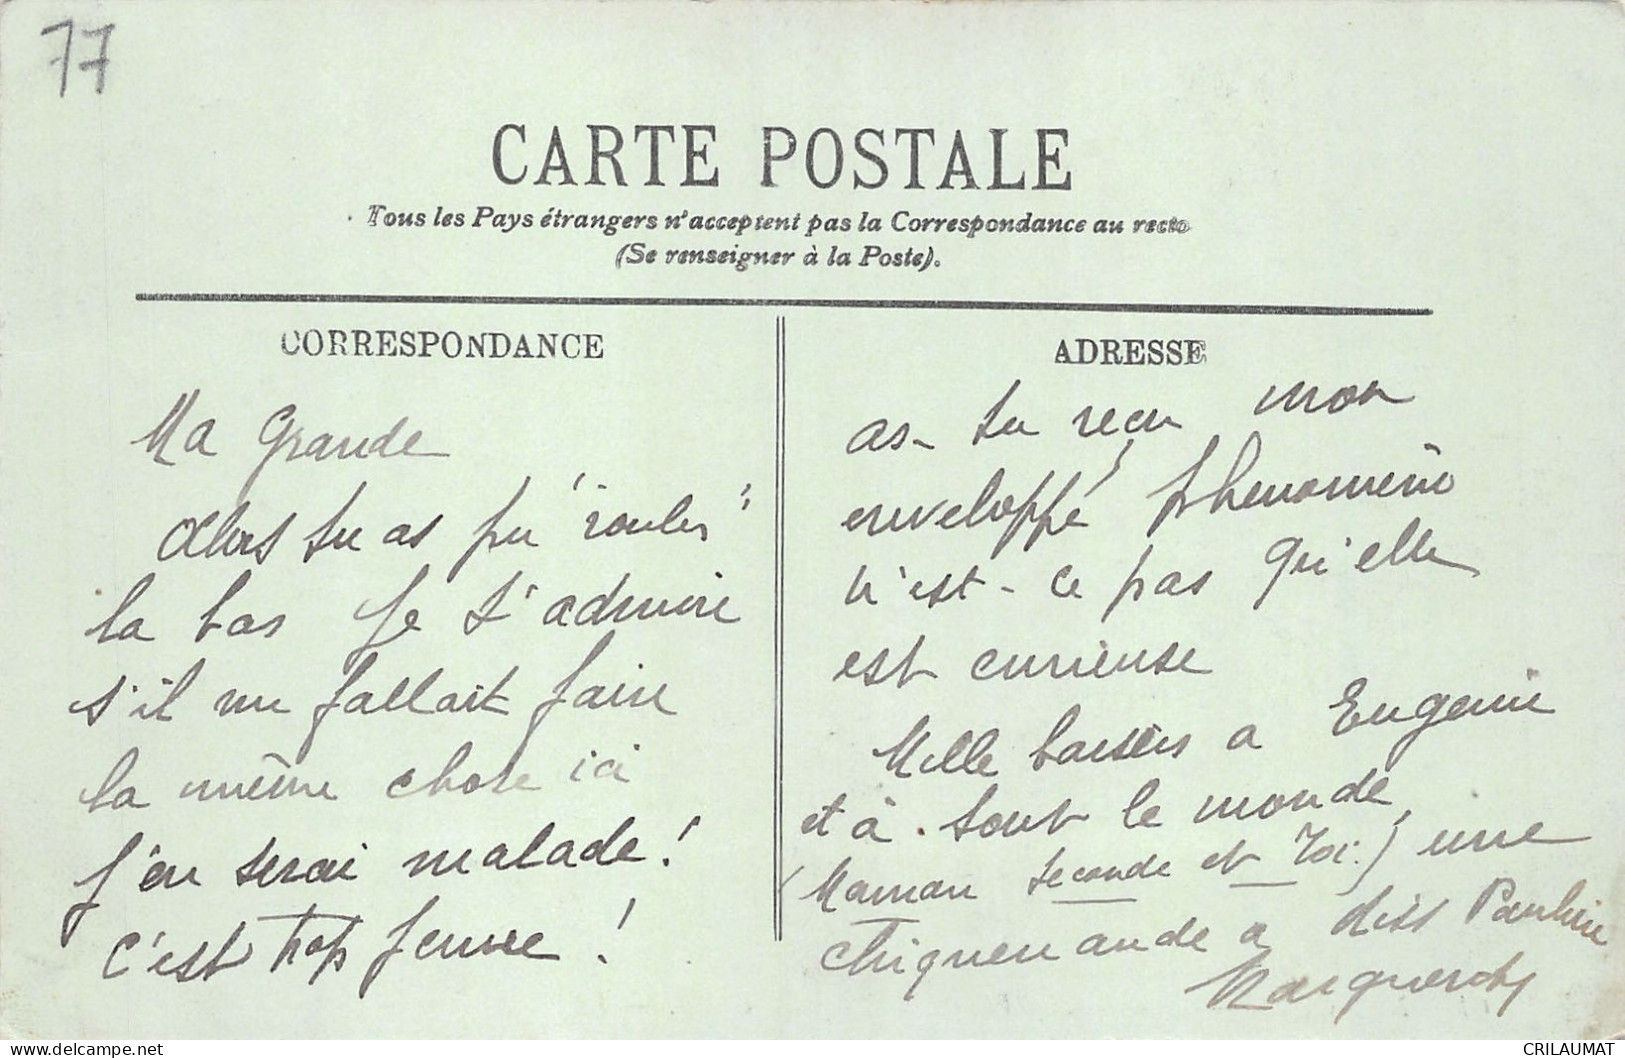 77
CARTE POSTALE
Tous les Pays étrangers n'acceptent pas la Correspondance au recto
(Se renseigner à la Poste).
CORRESPONDANCE
Ma Grande
Alors tu as pu "rouler"
la bas Je t'admire
s'il me fallait faire
la même chose ici
J'en serai malade!
C'est trop jeune!
ADRESSE
as-tu reçu mon
enveloppé phenomène
n'est-ce pas qu'elle
est curieuse
Mille baisers a Eugenie
et à tout le monde,
(Maman seconde et Toi.) une
chiquenaude a Pauline
CRILAUMAT